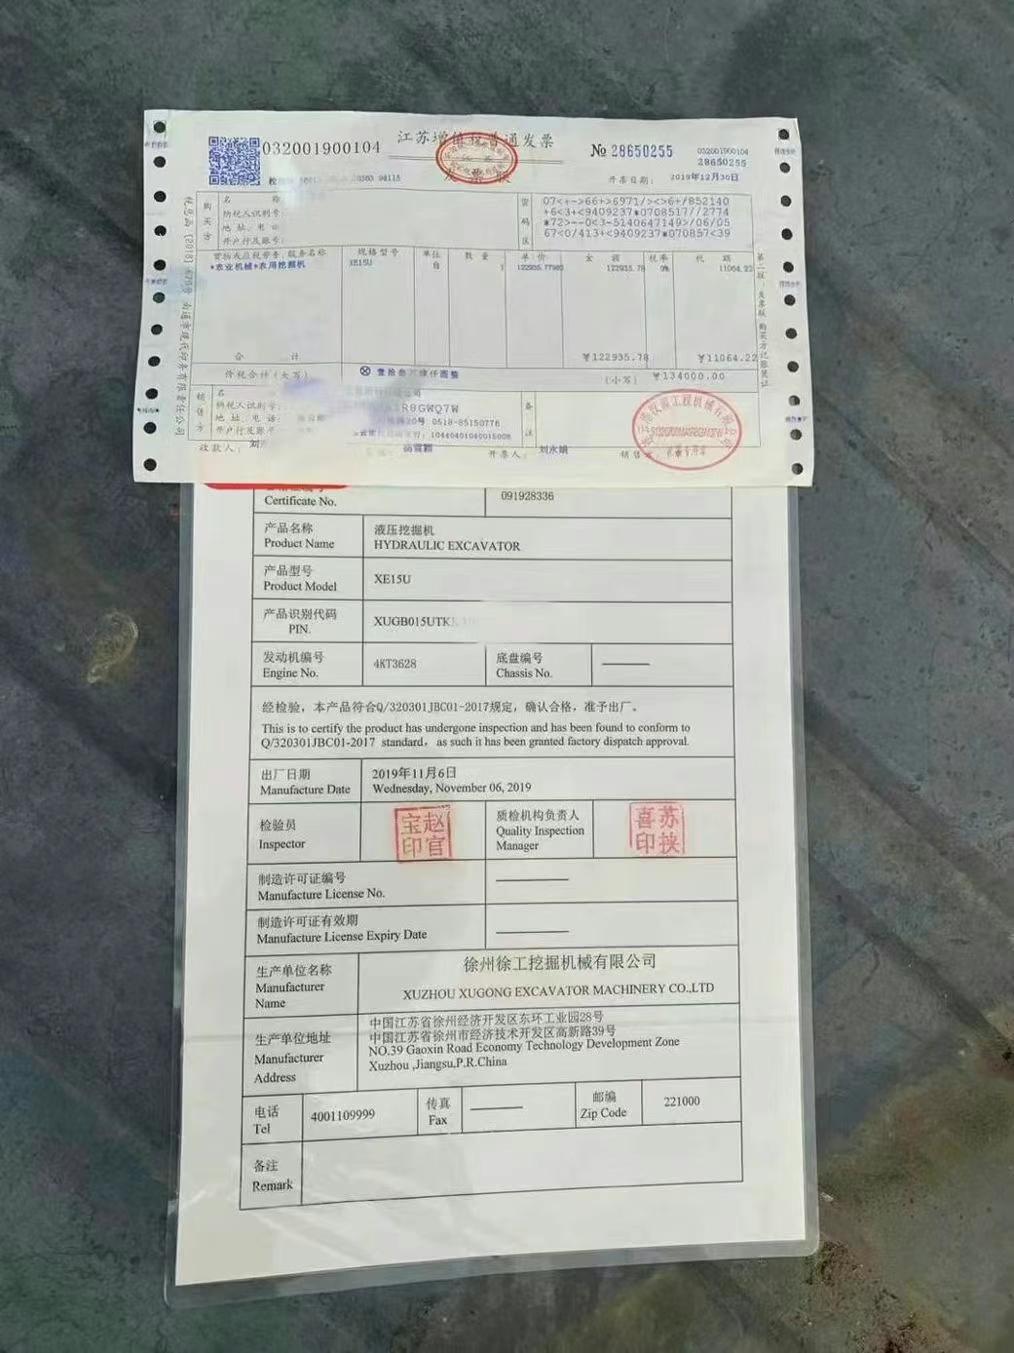 江苏增值税普通发票
032001900104
№ 28650255
032001900104
28650255
开票日期： 2019年12月30日
购买方
名 称：
纳税人识别号：
地 址、电 话：
开户行及账号：
密码区
07<+->66+>6971/><>6+/852140
+6<3+<9409237*0708517//2774
*72>--0<3-5140647149>/06/05
67<0/413+<9409237*070857<39
货物或应税劳务、服务名称 规格型号 单位 数 量 单 价 金 额 税率 税 额
*农业机械*农用挖掘机 XE15U 1 122935.77982 122935.78 9% 11064.22
合 计 ￥122935.78 ￥11064.22
价税合计（大写） （小写） ￥134000.00
销售方
纳税人识别号：
地 址、电 话： 0518-85150776
开户行及账号： 10440401040015008
备注
收款人： 开票人： 刘永娟
第二联：发票联 购买方记账凭证
Certificate No. 091928336
产品名称 液压挖掘机
Product Name HYDRAULIC EXCAVATOR
产品型号
Product Model XE15U
产品识别代码
PIN. XUGB015UTK
发动机编号 4KT3628 底盘编号
Engine No. Chassis No.
经检验，本产品符合Q/320301JBC01-2017规定，确认合格，准予出厂。
This is to certify the product has undergone inspection and has been found to conform to
Q/320301JBC01-2017 standard，as such it has been granted factory dispatch approval.
出厂日期 2019年11月6日
Manufacture Date Wednesday, November 06, 2019
检验员
Inspector
宝赵
印官
质检机构负责人
Quality Inspection
Manager
喜苏
印挟
制造许可证编号
Manufacture License No.
制造许可证有效期
Manufacture License Expiry Date
生产单位名称 徐州徐工挖掘机械有限公司
Manufacturer
Name XUZHOU XUGONG EXCAVATOR MACHINERY CO.,LTD
生产单位地址
Manufacturer
Address
中国江苏省徐州经济开发区东环工业园28号
中国江苏省徐州市经济技术开发区高新路39号
NO.39 Gaoxin Road Economy Technology Development Zone
Xuzhou ,Jiangsu,P.R.China
电话 传真 邮编
Tel 4001109999 Fax Zip Code 221000
备注
Remark